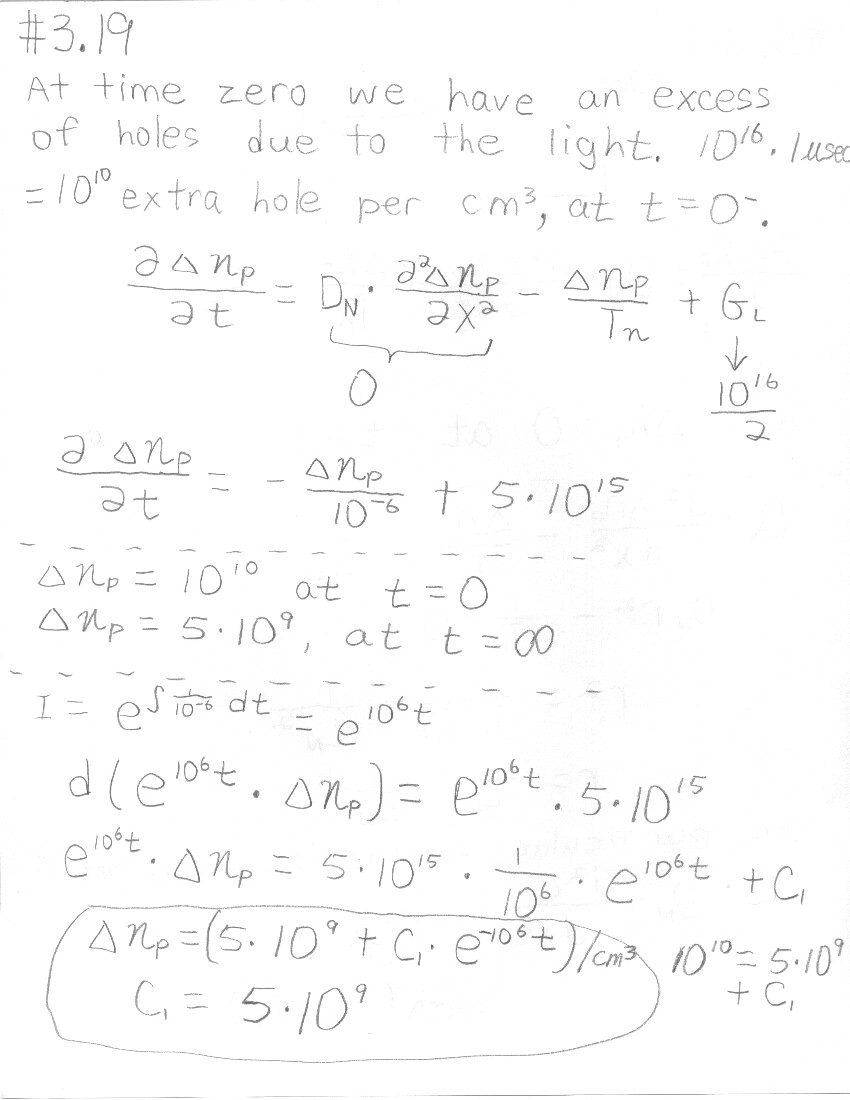 #3.19
At time zero we have an excess
of holes due to the light. 10¹⁶. 1usec
= 10¹⁰ extra hole per cm³, at t = 0⁻.
∂Δnₚ/∂t = D_N · ∂²Δnₚ/∂x² − Δnₚ/Tₙ + G_L
0
↓
10¹⁶/2
∂Δnₚ/∂t = − Δnₚ/10⁻⁶ + 5·10¹⁵
Δnₚ = 10¹⁰ at t = 0
Δnₚ = 5·10⁹, at t = ∞
I = e^(∫ 1/10⁻⁶ dt) = e^(10⁶t)
d(e^(10⁶t) · Δnₚ) = e^(10⁶t) · 5·10¹⁵
e^(10⁶t) · Δnₚ = 5·10¹⁵ · 1/10⁶ · e^(10⁶t) + C₁
Δnₚ = (5·10⁹ + C₁· e^(−10⁶t))/cm³
C₁ = 5·10⁹
10¹⁰ = 5·10⁹
+ C₁